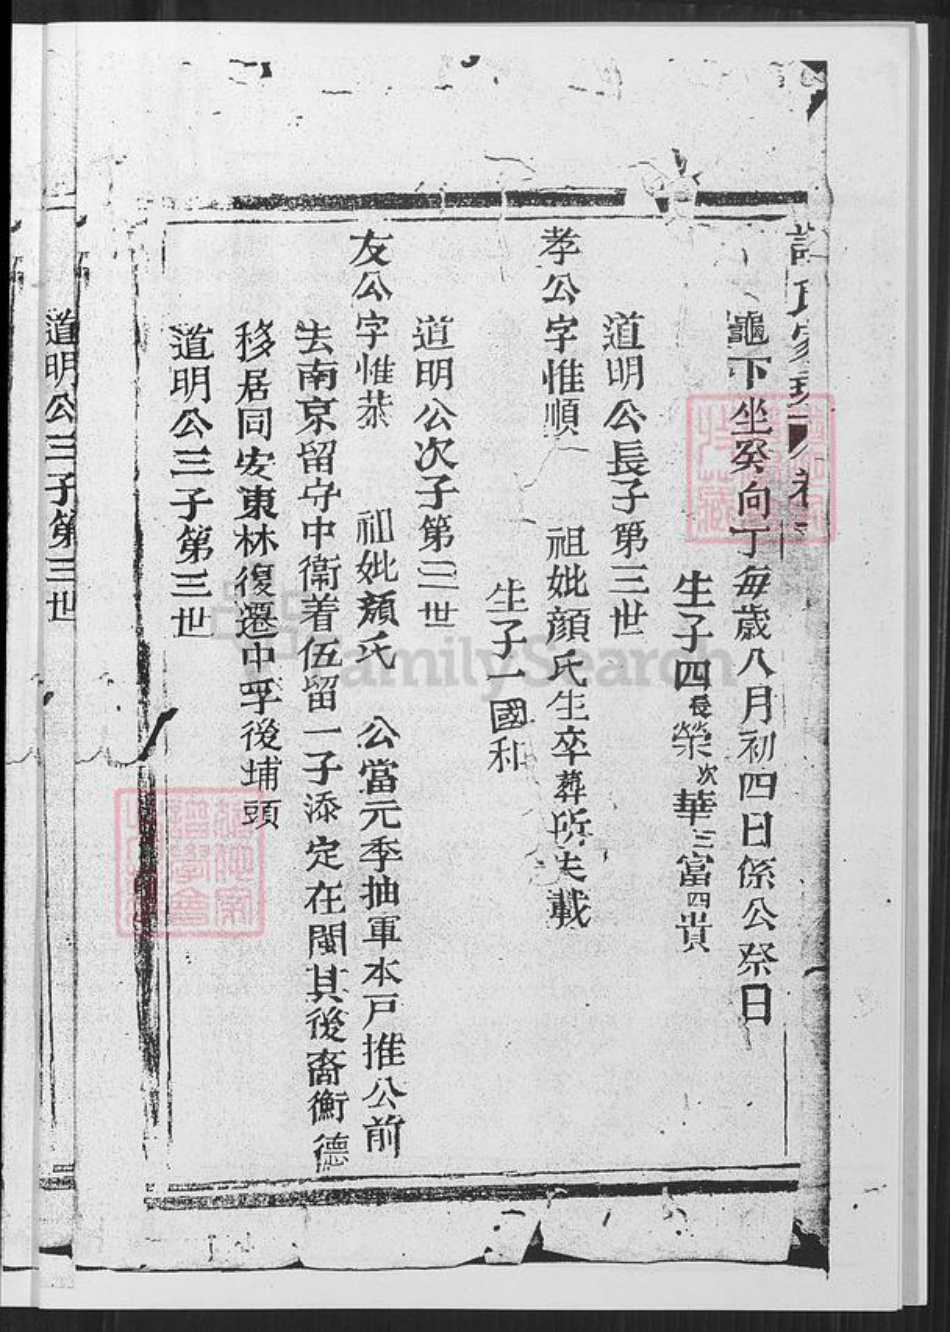 龜下坐癸向丁每歳八月初四日係公祭日
生子四長榮次華三富四貴
道明公長子第三世
孝公字惟順 祖妣顔氏生卒葬所失載
生子一國和
道明公次子第三世
友公字惟恭 祖妣顔氏 公當元季抽軍本戸推公前
去南京留守中衞着伍留一子添定在閩其後裔衡德
移居同安東林復遷中孚後埔頭
道明公三子第三世
道明公三子第三世
FamilySearch